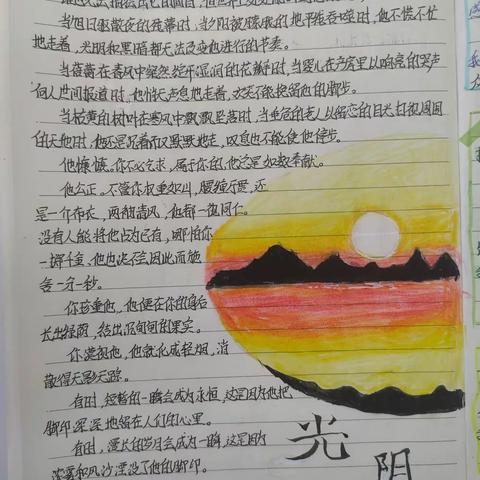 当旭日驱散夜的残幕时,当夕阳被朦胧的地平线吞噬时,他不慌不忙
地走着,光明和黑暗都无法改变他进行的节奏。
当蓓蕾在春风中粲然绽开湿润的花瓣时,当婴儿在产房里以响亮的哭声
向人世间报道时,他悄无声息地走着,欢笑不能挽留他的脚步。
当枯黄的树叶在寒风中飘飘坠落时,当垂危的老人以留恋的目光扫视周围
的天地时,他还是沉着而又默默地走,叹息也不能使他停步。
他慷慨。你不必乞求,属于你的,他总是如数奉献。
他公正。不管你权重如山,腰缠万贯,还
是一个布衣,两袖清风,他都一视同仁。
没有人能将他占为己有,哪怕你
一掷千金,他也决不会因此而施
舍一分一秒。
你珍重他,他便在你的身后
长出绿荫,结出沉甸甸的果实。
你漠视他,他就化成轻烟,消
散得无影无踪。
有时,短暂的一瞬会成为永恒,这是因为他把
脚印深深地留在人们的心里。
有时,漫长的岁月会成为一瞬,这是因为
浓雾和风沙湮没了他的脚印。
光
阴